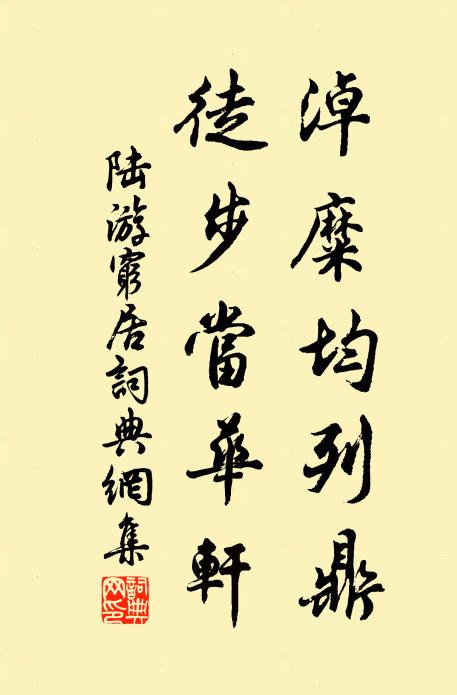 淖糜均列鼎
徒步當華軒
陸游窮居詞典網集
詞典網印